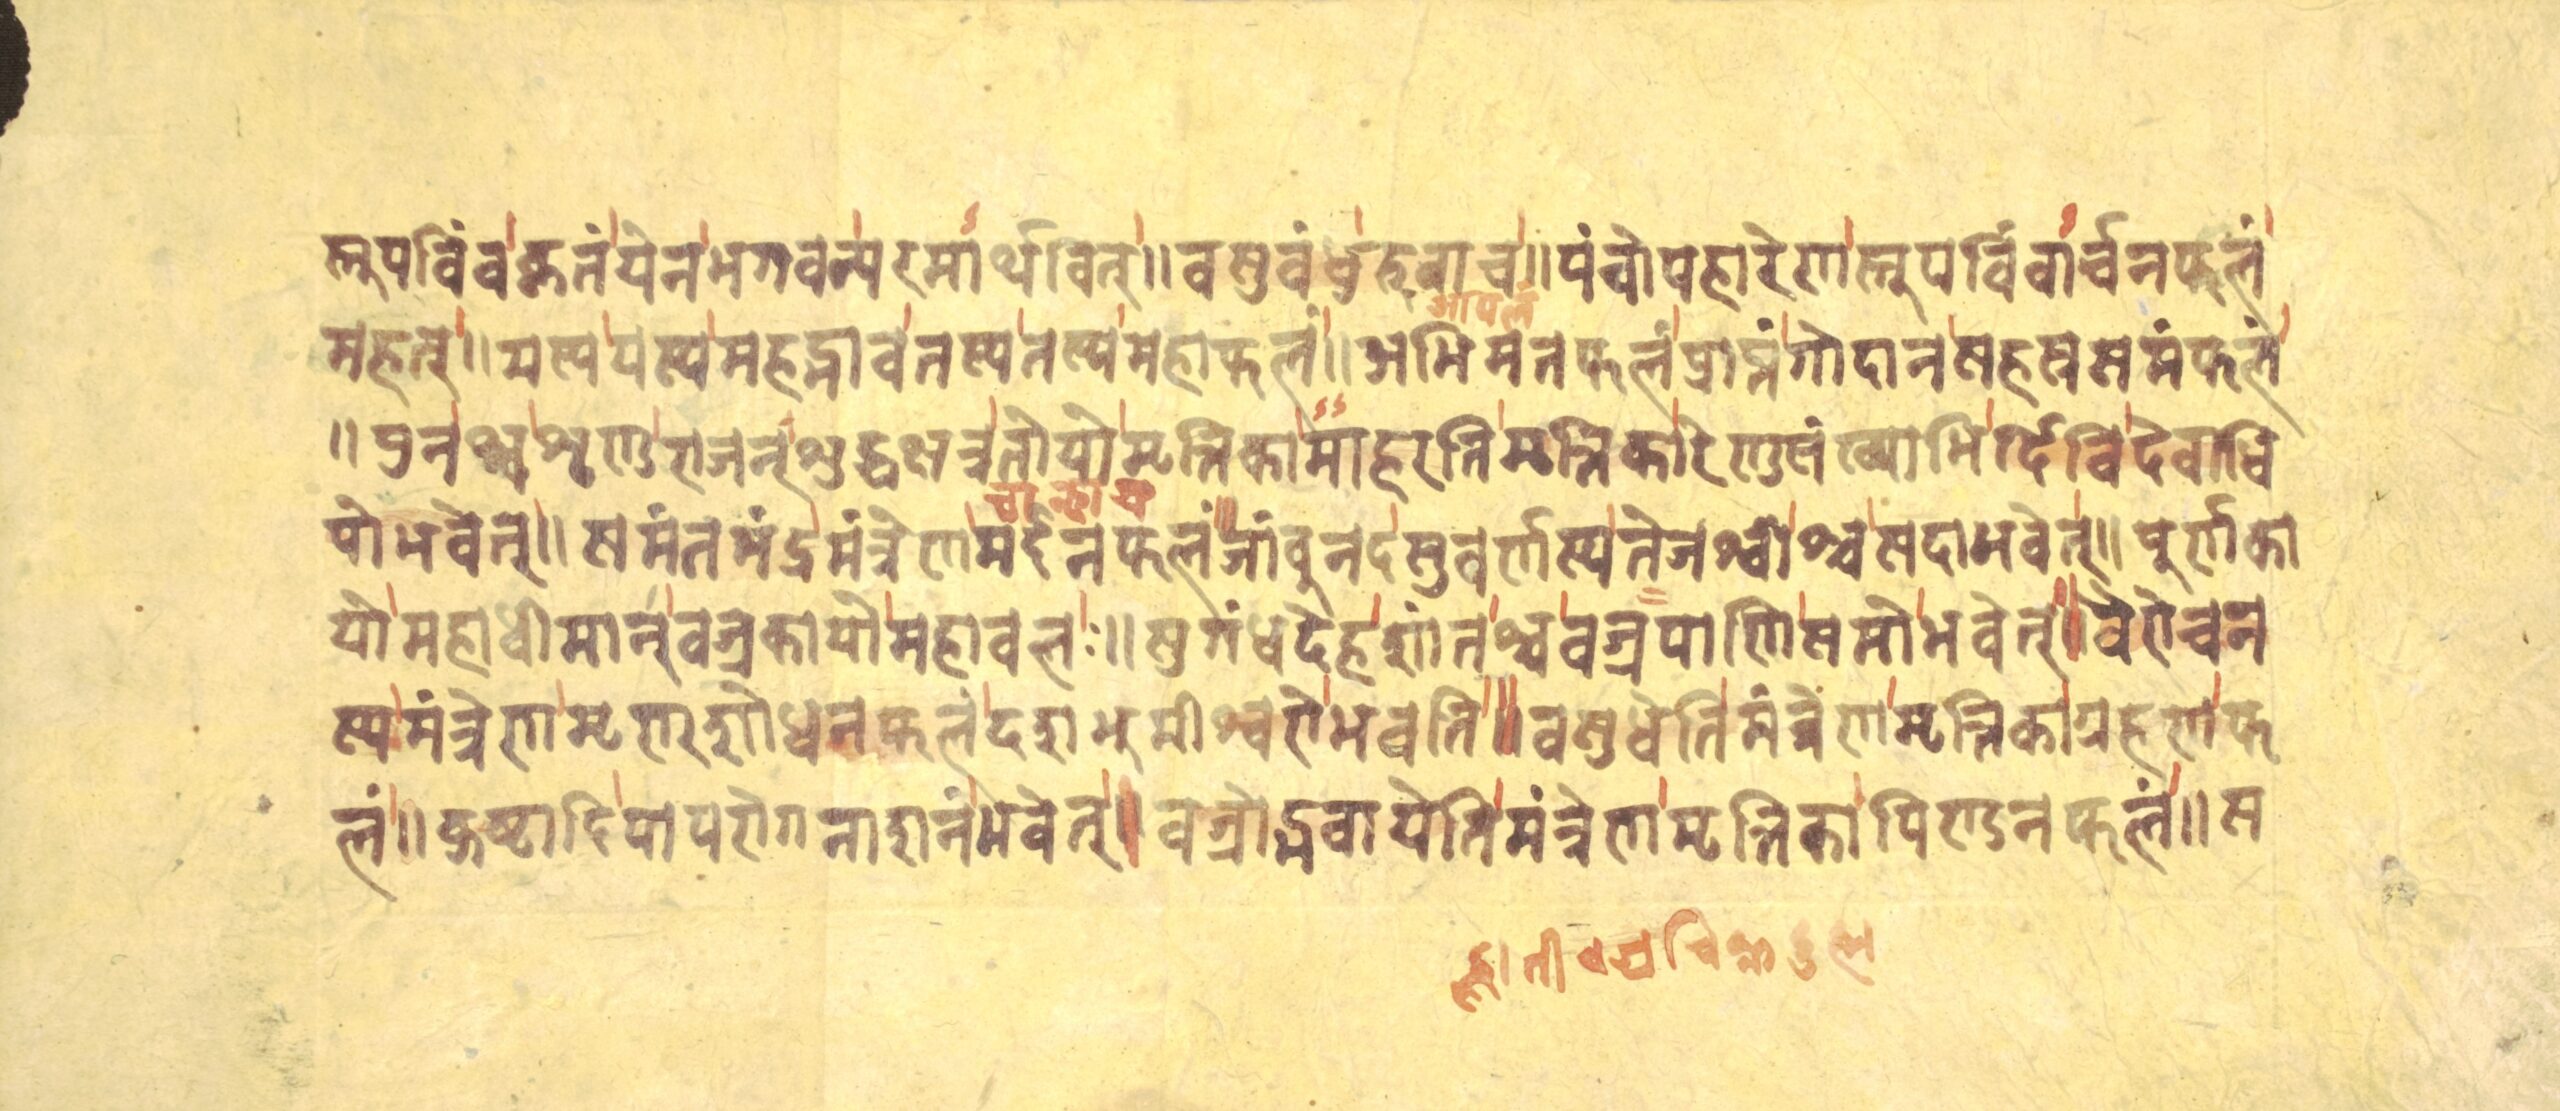 स्तुपविंवकृतंयेनभगवन्परमार्थवित्॥वसुवंधुरुवाच॥पंचोपहारेणस्तुपविंवार्चनफलं
महत्॥यस्ययस्यमहद्भावतस्यतस्यमहाफलं॥अभिमतफलंप्राप्तंगोदानसहस्रसमंफलं
॥पुनश्चशृणुराजन्शुद्धक्षत्रतोयोमृत्तिकामाहरन्तिमृत्तिकारेणुसंख्याभिर्दिविदेवाधि
पोभवेत्॥समंतभंद्रमंत्रेणमर्दनफलंजांवुनदसुवर्णस्यतेजश्वीश्चसदाभवेत्॥पुर्णका
योमहाधीमान्वज्रकायोमहावलः॥सुगंधदेहशांतश्चवज्रपाणिसमोभवेत्॥वैरोचन
स्यमंत्रेणमृणशोधनफलंदशभुमीश्वरोभवति॥वसुधेतिमंत्रेणमृत्तिकाग्रहणफ
लं॥कुष्टादिपापरोगनाशनंभवेत्॥वज्रोद्भवायेतिमंत्रेणमृत्तिकापिण्डनफलं॥स